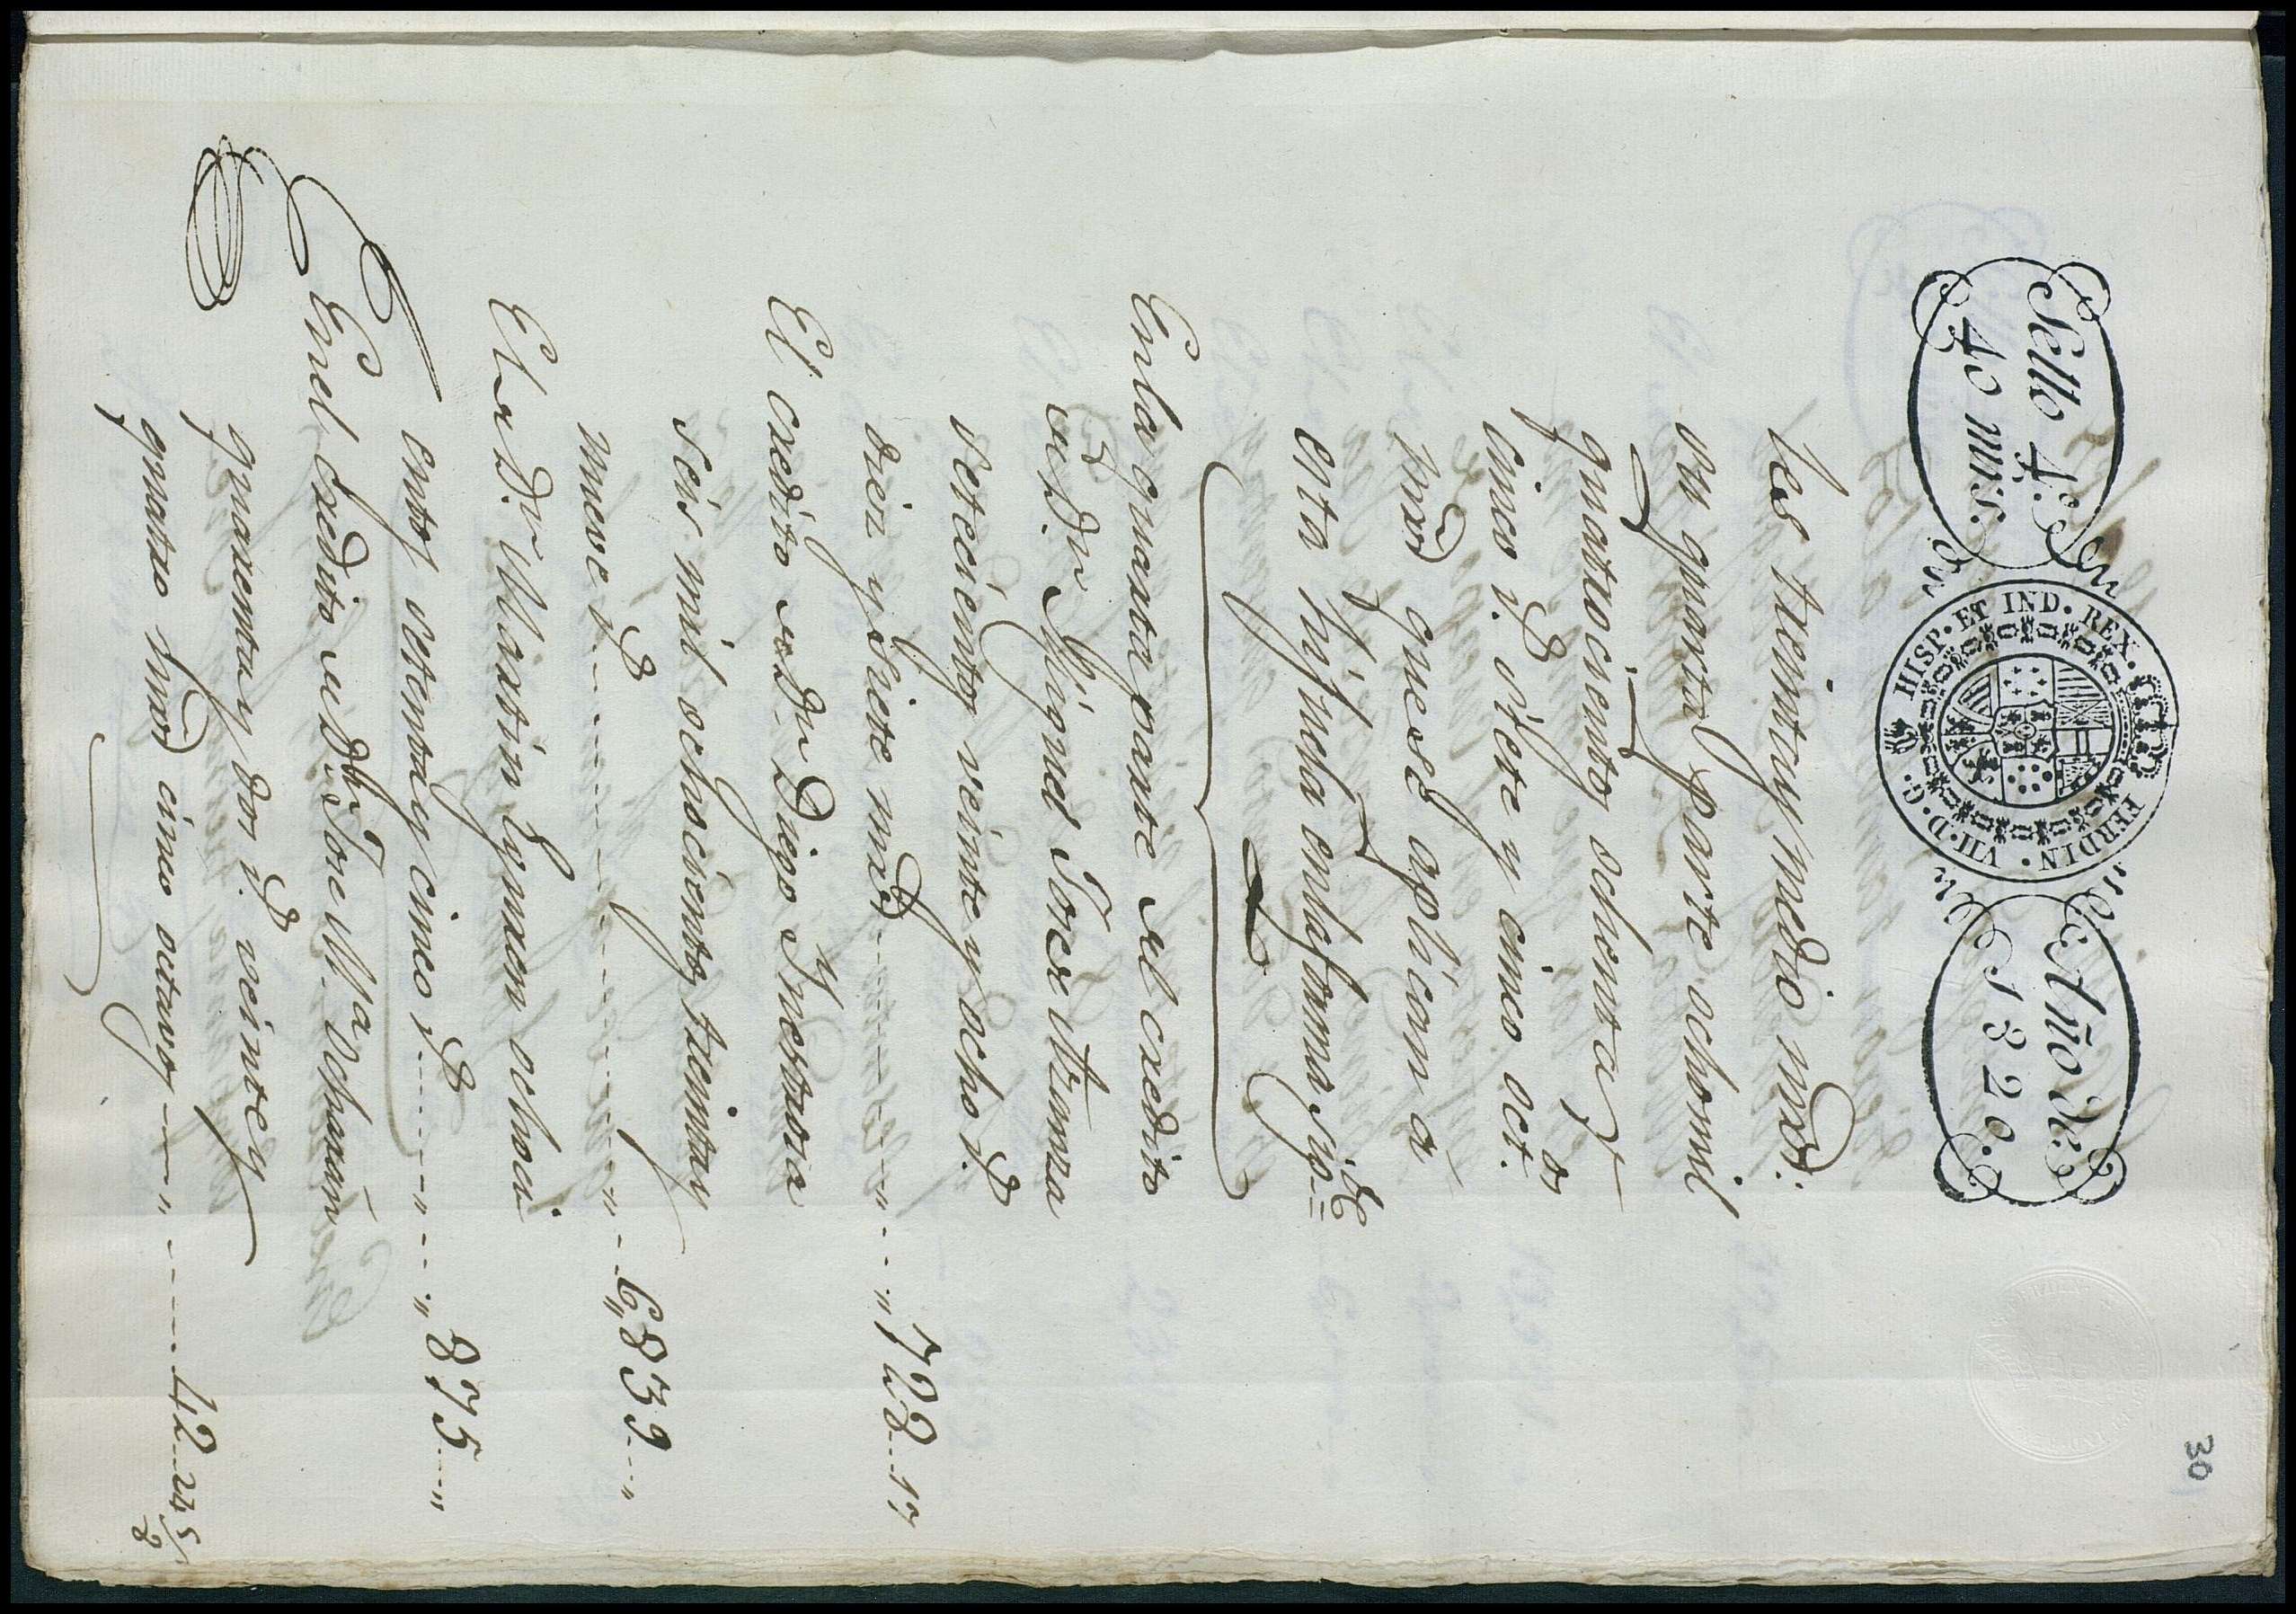 30
Sello 4.º
40 mrs.
HISP. ET IND. REX. FERDIN. VII. D. G.
Año de
1820.
les treinta y medio mrs.
su quarta parte ocho mil
quatrocientos ochenta y
cinco r.s siete y cinco oct.os
mrs que se aplican a
esta hijuela en la forma sig.te
En la quarta parte del credito
de D.n Miguel Jose
setecientos veinte y ocho r.s
diez y siete mrs 728..17
El credito de D.n Diego
seis mil ochocientos treinta y
nueve r.s 6,,839
El de D.n Martin Guzman ochoci
entos setenta y cinco r.s 875
En el credito de D.n Jose M.a
quarenta y dos r.s veinte y
quatro mrs cinco octavos 42..24 5/8